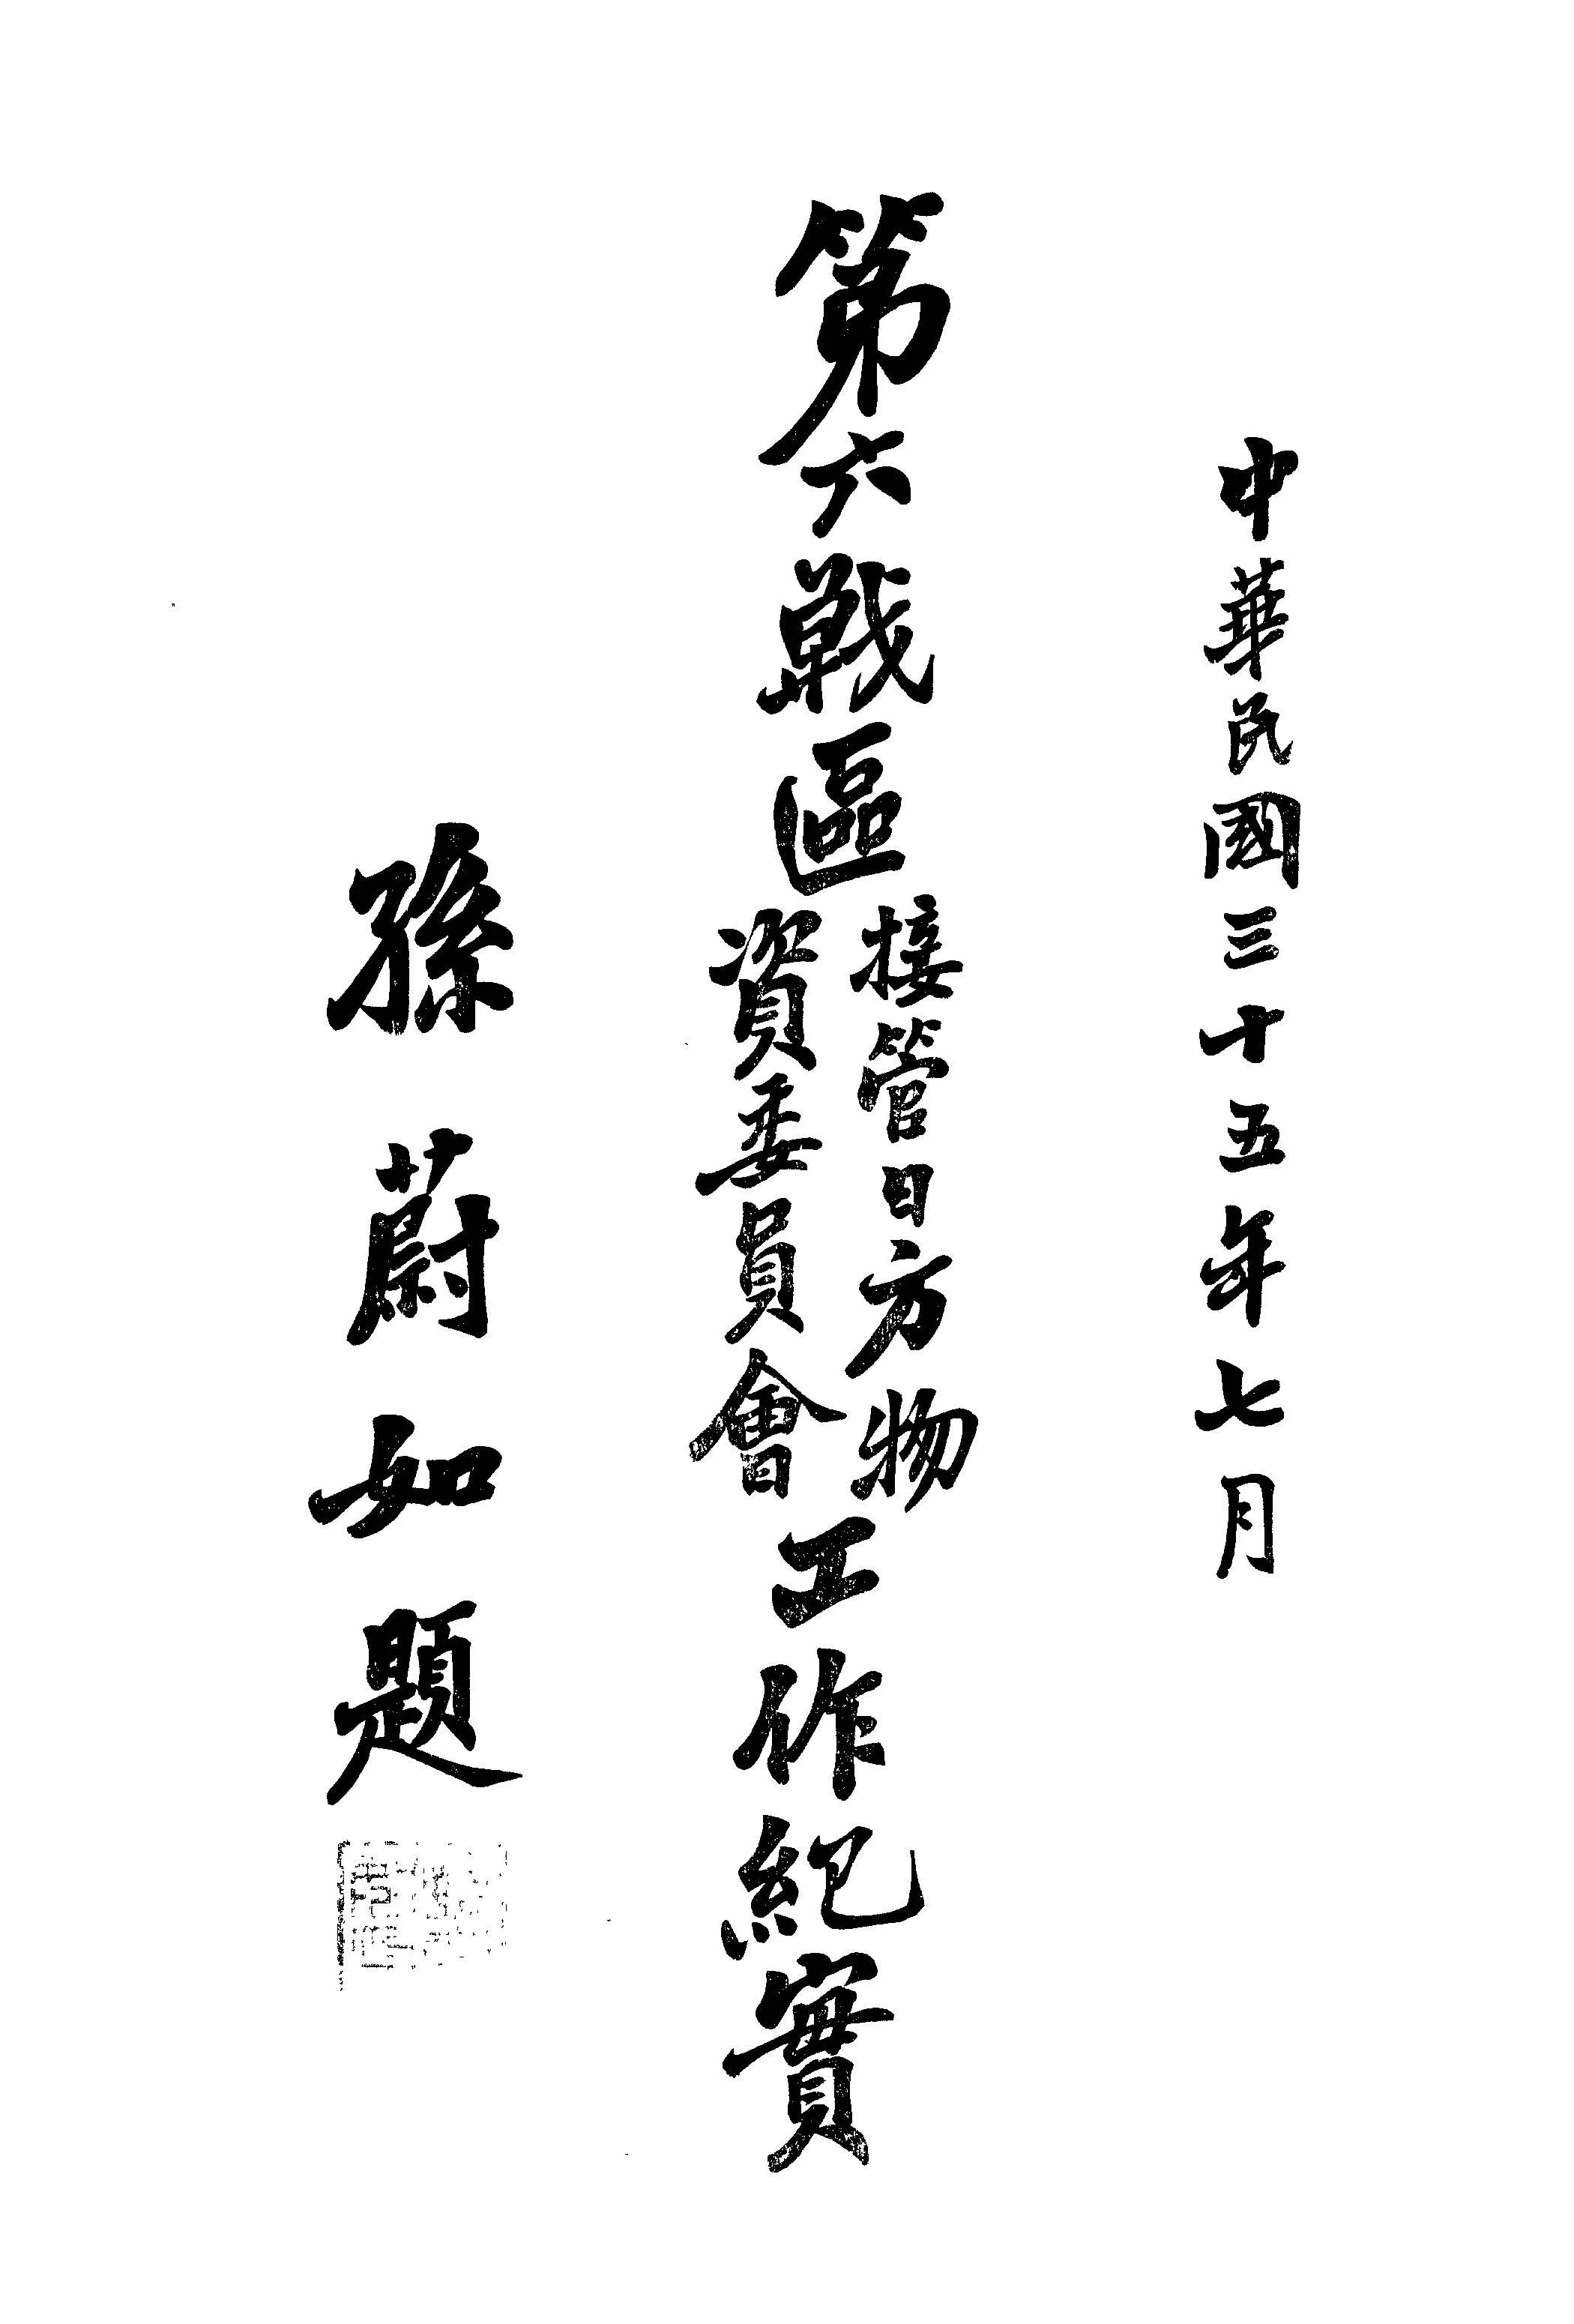 中華民國三十五年七月
第六戰區接管日方物資委員會工作紀實
孫蔚如題